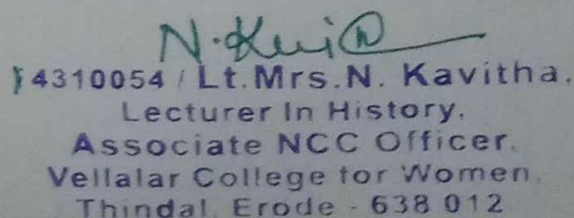 N. Kavi
14310054 / Lt.Mrs.N. Kavitha,
Lecturer In History,
Associate NCC Officer,
Vellalar College for Women,
Thindal, Erode - 638 012.